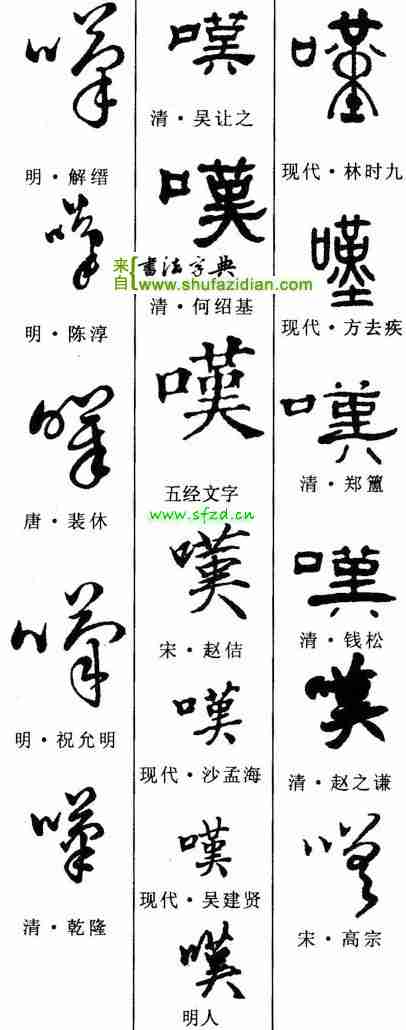 嘆
明·解缙
嘆
明·陈淳
嘆
唐·裴休
嘆
明·祝允明
嘆
清·乾隆
嘆
清·吴让之
嘆
来自
書法字典
www.shufazidian.com
清·何绍基
嘆
五经文字
www.sfzd.cn
嘆
宋·赵佶
嘆
现代·沙孟海
嘆
现代·吴建贤
嘆
明人
嘆
现代·林时九
嘆
现代·方去疾
嘆
清·郑簠
嘆
清·钱松
嘆
清·赵之谦
嘆
宋·高宗